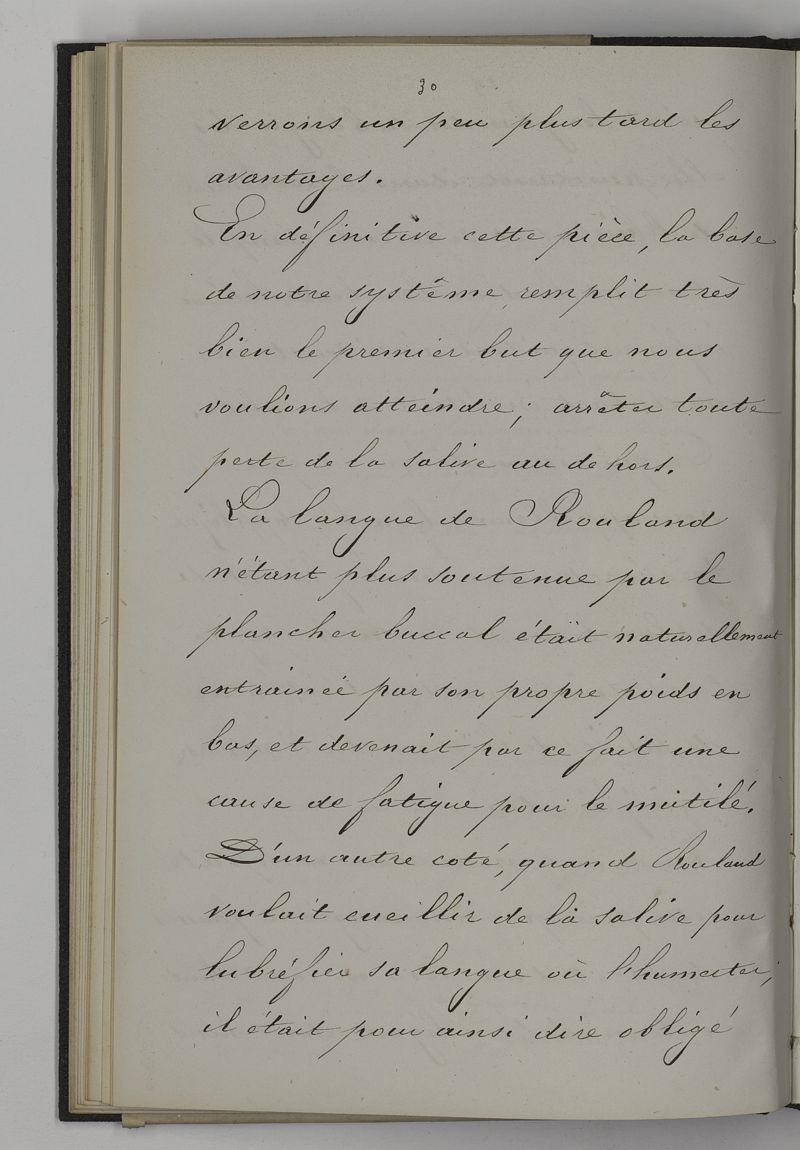 30
verrons un peu plus tard les
avantages.
En définitive cette pièce, la base
de notre système, remplit très
bien le premier but que nous
voulions atteindre; arrêter toute
perte de la salive au dehors.
La langue de Rouland
n'étant plus soutenue par le
plancher buccal étäit naturellement
entrainée par son propre poids en
bas, et devenait par ce fait une
cause de fatigue pour le mutilé.
D'un autre coté, quand Rouland
voulait cueillir de là salive pour
lubréfier sa langue où l'humecter,
il était pour ainsi dire obligé